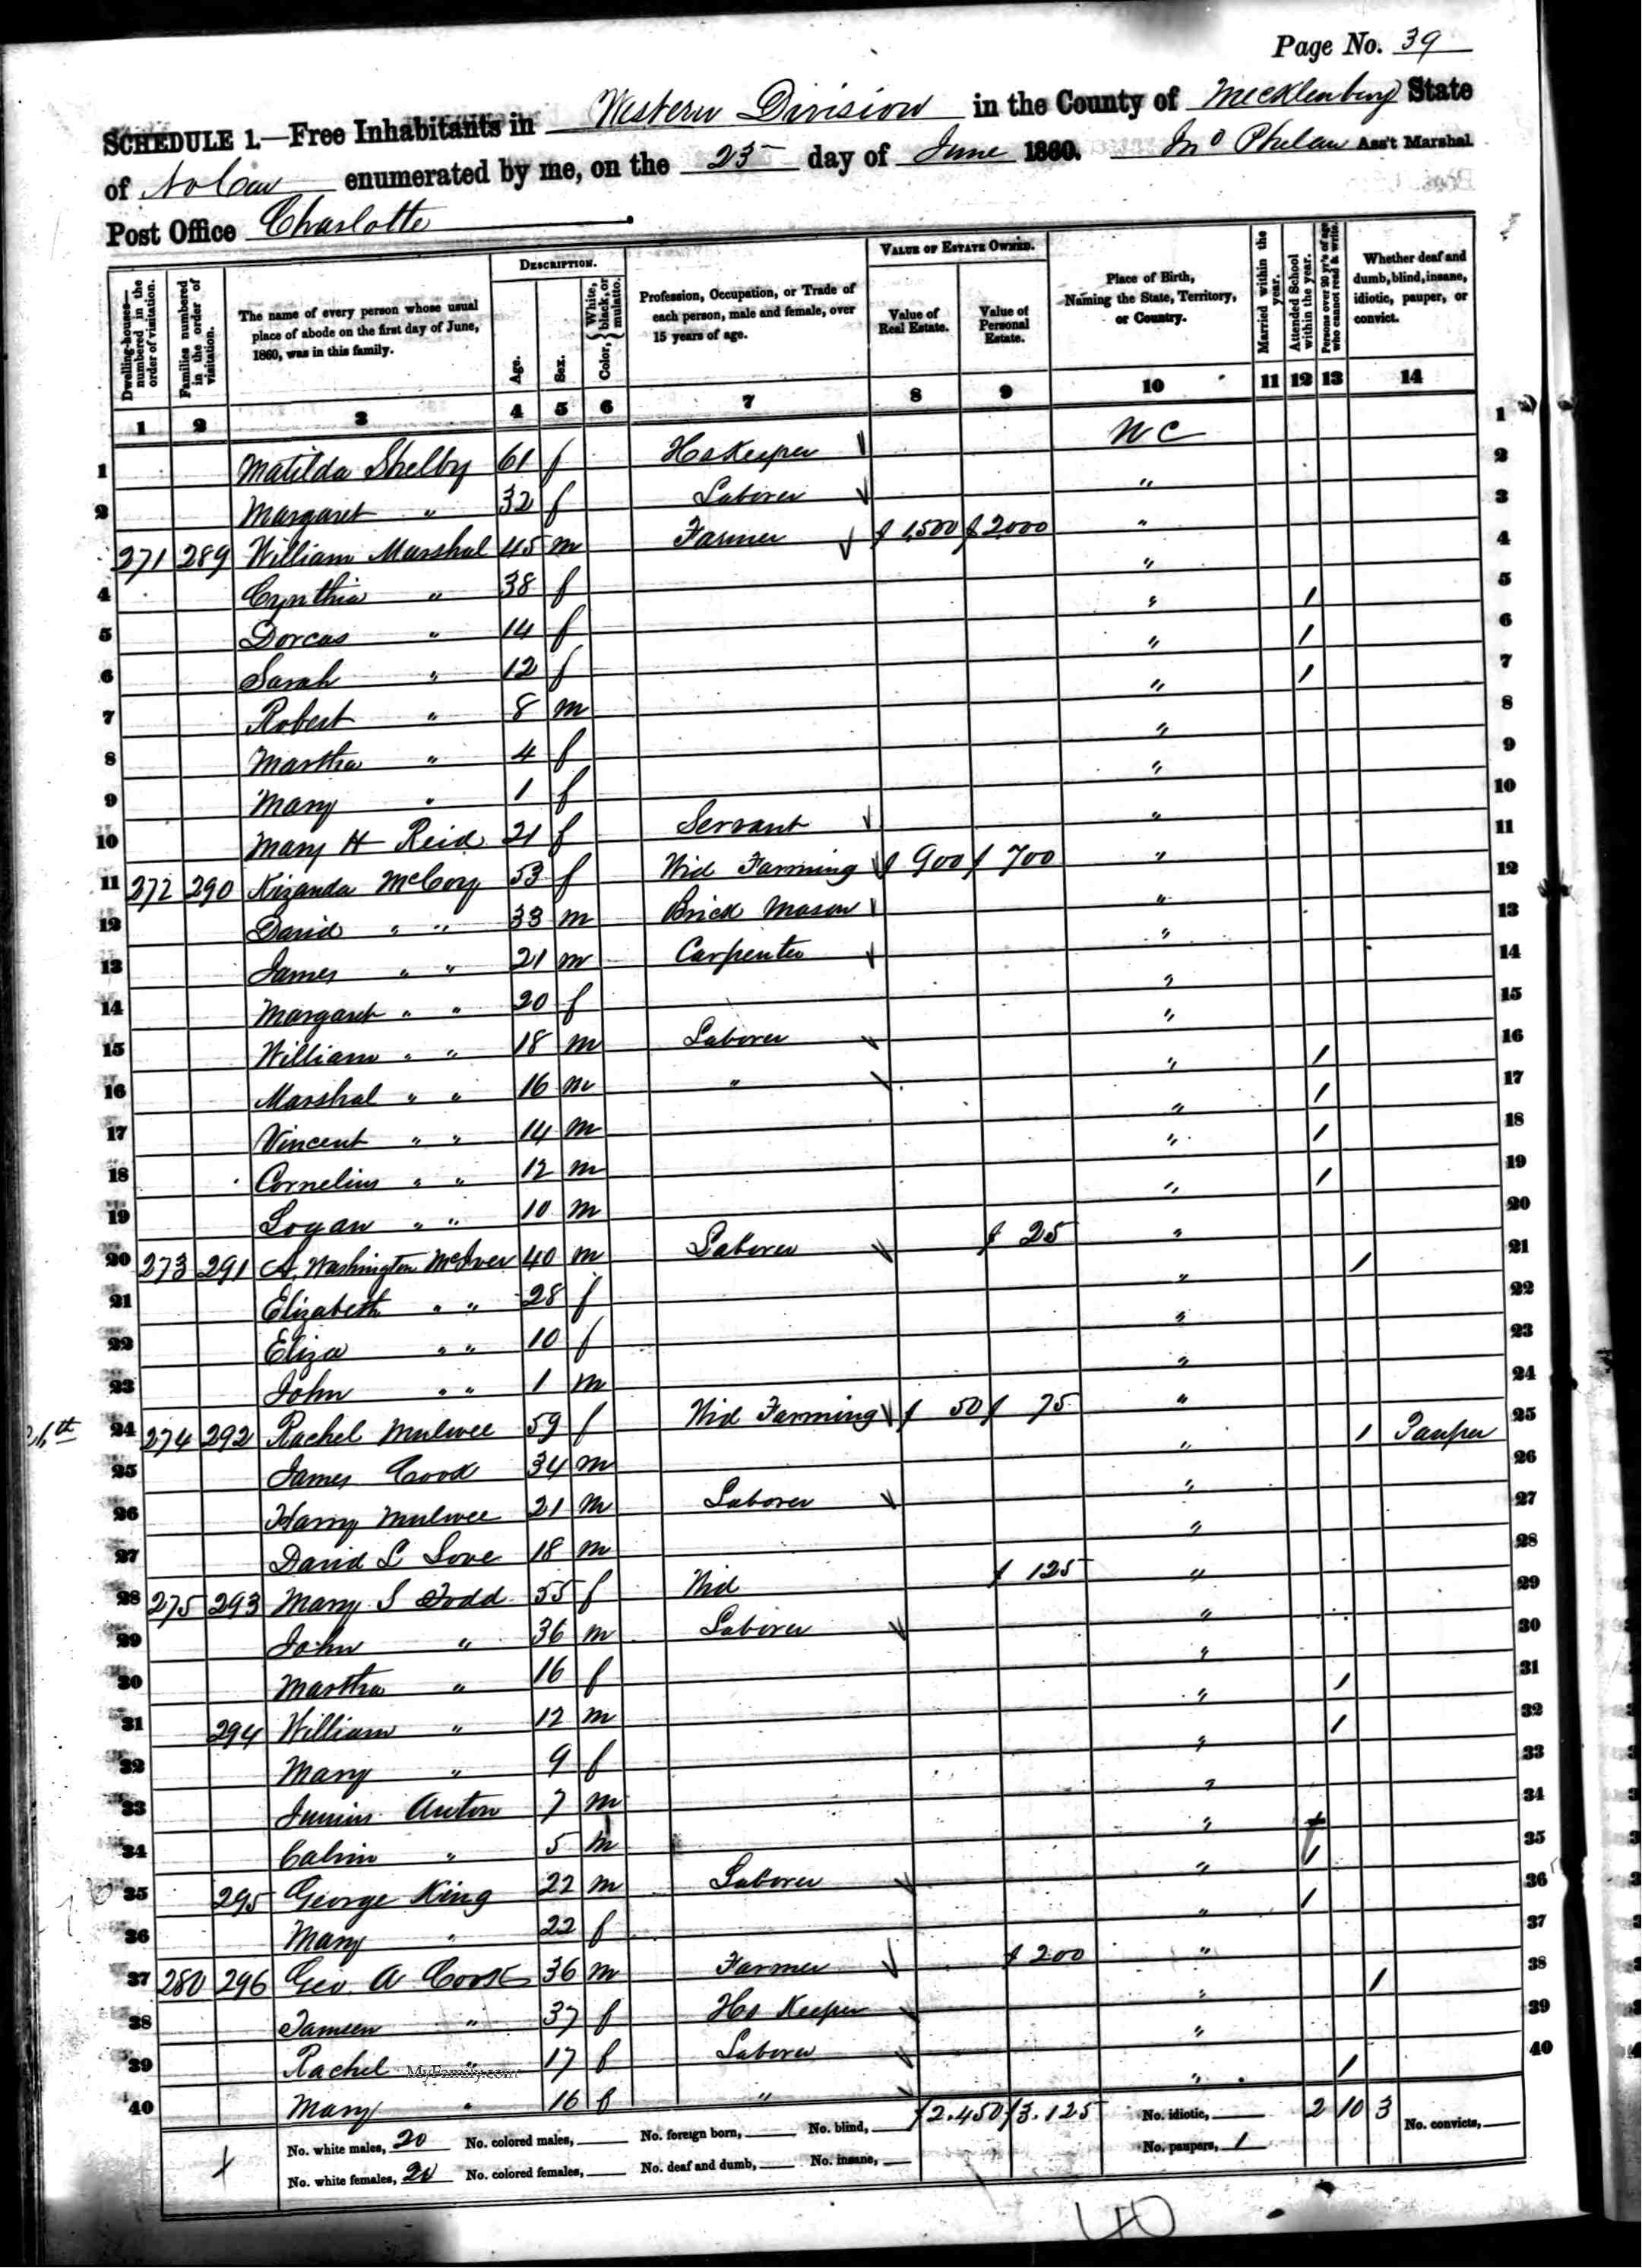 Page No. 39
SCHEDULE 1.—Free Inhabitants in Western Division in the County of Mecklenburg State
of No Car enumerated by me, on the 23 day of June 1860. Jno Phelan Ass't Marshal
Post Office Charlotte
Dwelling-houses—numbered in the order of visitation.
Families numbered in the order of visitation.
The name of every person whose usual place of abode on the first day of June, 1860, was in this family.
DESCRIPTION.
Age.
Sex.
Color, } White, black, or mulatto.
Profession, Occupation, or Trade of each person, male and female, over 15 years of age.
VALUE OF ESTATE OWNED.
Value of Real Estate.
Value of Personal Estate.
Place of Birth, Naming the State, Territory, or Country.
Married within the year.
Attended School within the year.
Persons over 20 yr's of age who cannot read & write.
Whether deaf and dumb, blind, insane, idiotic, pauper, or convict.
1 2 3 4 5 6 7 8 9 10 11 12 13 14
1 Matilda Shelby 61 f HsKeeper N C 1
2 Margaret " 32 f Laborer " 2
271 289 William Marshal 45 m Farmer $ 1,500 $ 2000 " 3
4 Cynthia " 38 f " 4
5 Dorcas " 14 f " / 5
6 Sarah " 12 f " / 6
7 Robert " 8 m " / 7
8 Martha " 4 f " 8
9 Mary " 1 f " 9
10 Mary H Reid 21 f Servant " 10
11 272 290 Kizanda McCory 53 f Wid Farming $ 900 $ 700 " 11
12 David " " 33 m Brick Mason " 12
13 James " " 21 m Carpenter " 13
14 Margaret " " 20 f " 14
15 William " " 18 m Laborer " 15
16 Marshal " " 16 m " " / 16
17 Vincent " " 14 m " / 17
18 Cornelius " " 12 m " / 18
19 Logan " " 10 m " / 19
20 273 291 A. Washington McIver 40 m Laborer $ 25 " 20
21 Elizabeth " " 28 f " / 21
22 Eliza " " 10 f " 22
23 John " " 1 m " 23
26th 24 274 292 Rachel Mulwee 59 f Wid Farming $ 50 $ 75 " 24
25 James Cook 34 m " / Pauper 25
26 Harry Mulwee 21 m Laborer " 26
27 David L Love 18 m " 27
28 275 293 Mary S Todd 55 f Wid $ 125 " 28
29 John " 36 m Laborer " 29
30 Martha " 16 f " 30
31 294 William " 12 m " / 31
32 Mary " 9 f " / 32
33 Junius Auton 7 m " 33
34 Calvin " 5 m " 34
35 295 George King 22 m Laborer " / 35
36 Mary " 22 f " / 36
37 280 296 Geo. A Cook 36 m Farmer $ 200 " 37
38 " 37 f Hs Keeper " / 38
39 Rachel " 17 f Laborer " 39
40 Mary " 16 f " " / 40
MyFamily.com
No. white males, 20 No. colored males, No. foreign born, No. blind, $2.450 $3.125 No. idiotic, 2 10 3 No. convicts,
No. white females, 20 No. colored females, No. deaf and dumb, No. insane, No. paupers, 1
40